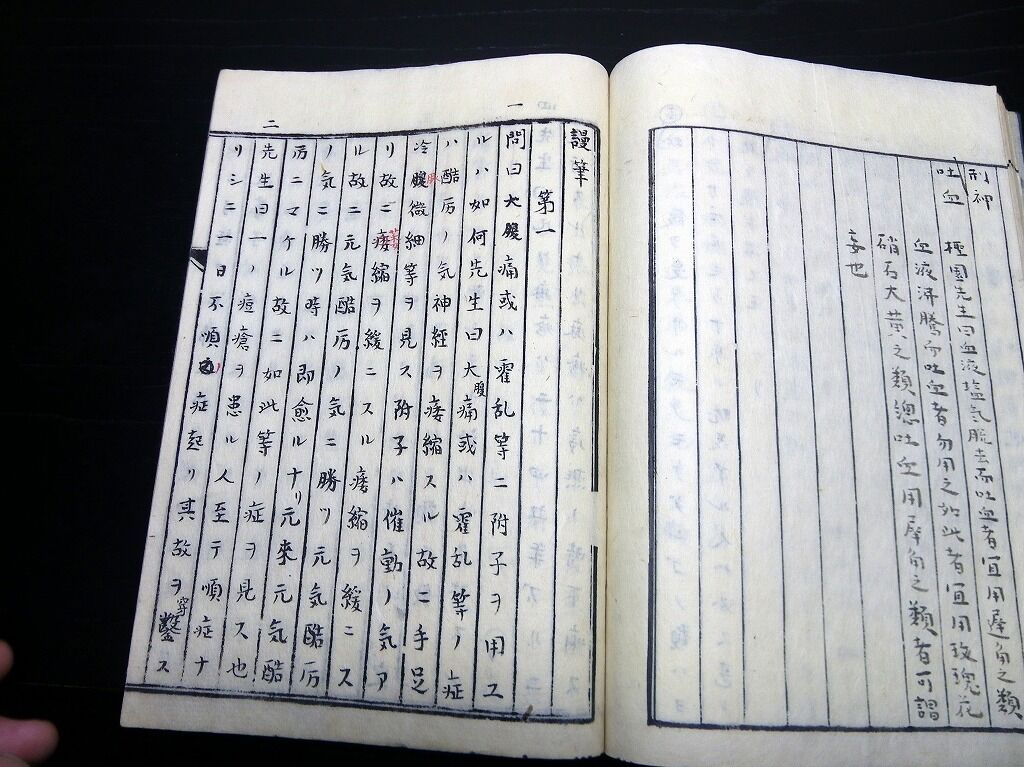 刑神
吐血 極園先生曰血液塩気脱去而吐血者宜用犀角之類
血液沸騰而吐血者勿用之如此者宜用玫瑰花
硝石大黄之類總吐血用犀角之類者可謂
妄也
謾筆
第一
一
問曰大腹痛或ハ霍乱等ニ附子ヲ用エ
ルハ如何先生曰大腹痛或ハ霍乱等ノ症
ハ酷厉ノ気神経ヲ痿縮スル故ニ手足
冷脈微細等ヲ見ス附子ハ催動ノ気ア
リ故ニ痿縮ヲ緩ニスル痿縮ヲ緩ニス
ル故ニ元気酷厉ノ気ニ勝ツ元気酷厉
ノ気ニ勝ツ時ハ即愈ルナリ元来元気酷
厉ニマケル故ニ如此等ノ症ヲ見ス也
二
先生曰一ノ痘瘡ヲ患ル人至テ順症ナ
リシニ一日不順ノ症起リ其故ヲ穿鑿ス